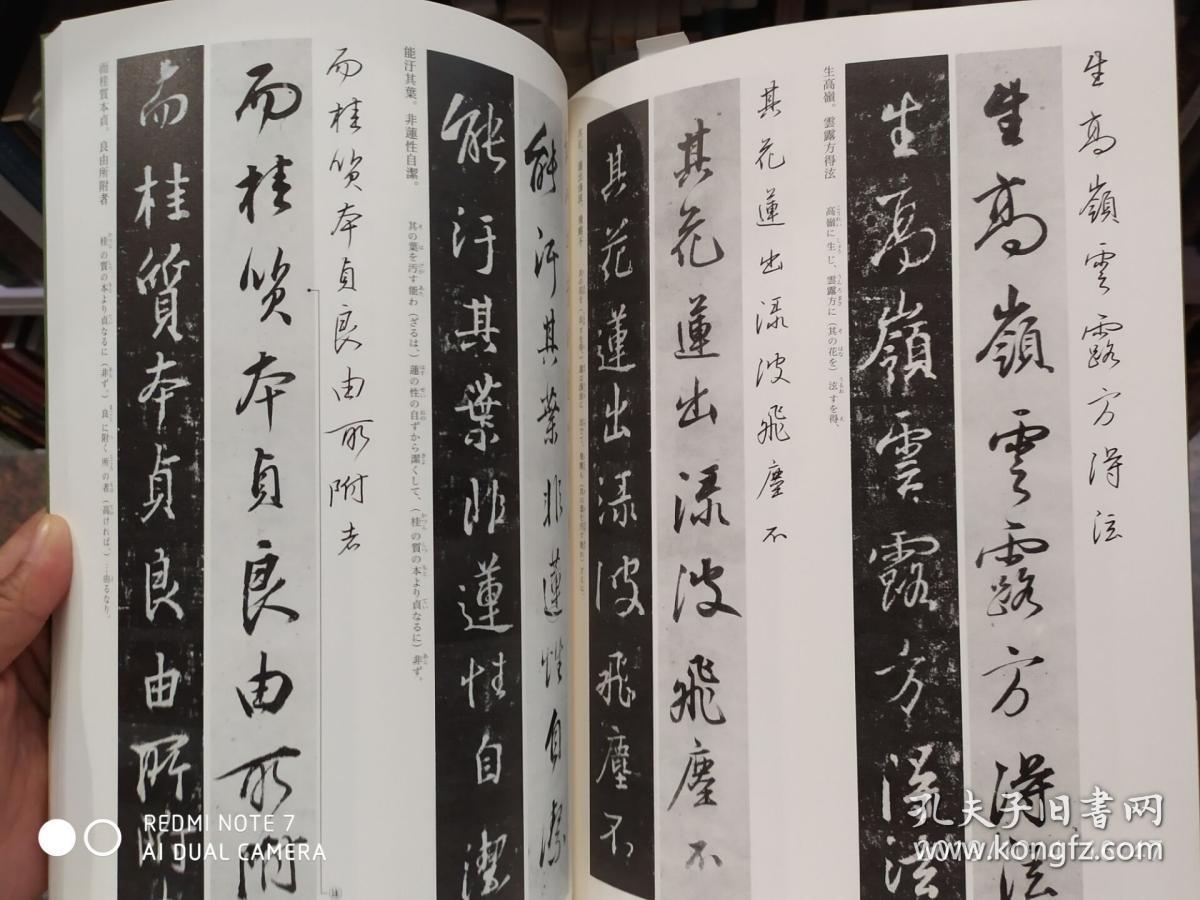 生高嶺雲露方得泫
生高嶺雲露方得泫
生高嶺雲露方得泫
生高嶺。雲露方得泫
高嶺に生じ、雲露方に（其の花を）泫すを得、
其花蓮出淥波飛塵不
其花蓮出淥波飛塵不
其花蓮出淥波飛塵不
能汙其葉非蓮性自潔
能汙其葉非蓮性自潔
能汙其葉。非蓮性自潔。
其の葉を汚す能わ（ざるは、）蓮の性の自ずから潔くして、（桂の質の本より貞なるに）非ず。
而桂質本貞良由所附者
而桂質本貞良由所附
而桂質本貞良由所附
而桂質本貞。良由所附者
桂の質の本より貞なるに（非ず。）良に附く所の者（高ければ、）…由るなり。
註
REDMI NOTE 7
AI DUAL CAMERA
孔夫子旧书网
www.kongfz.com